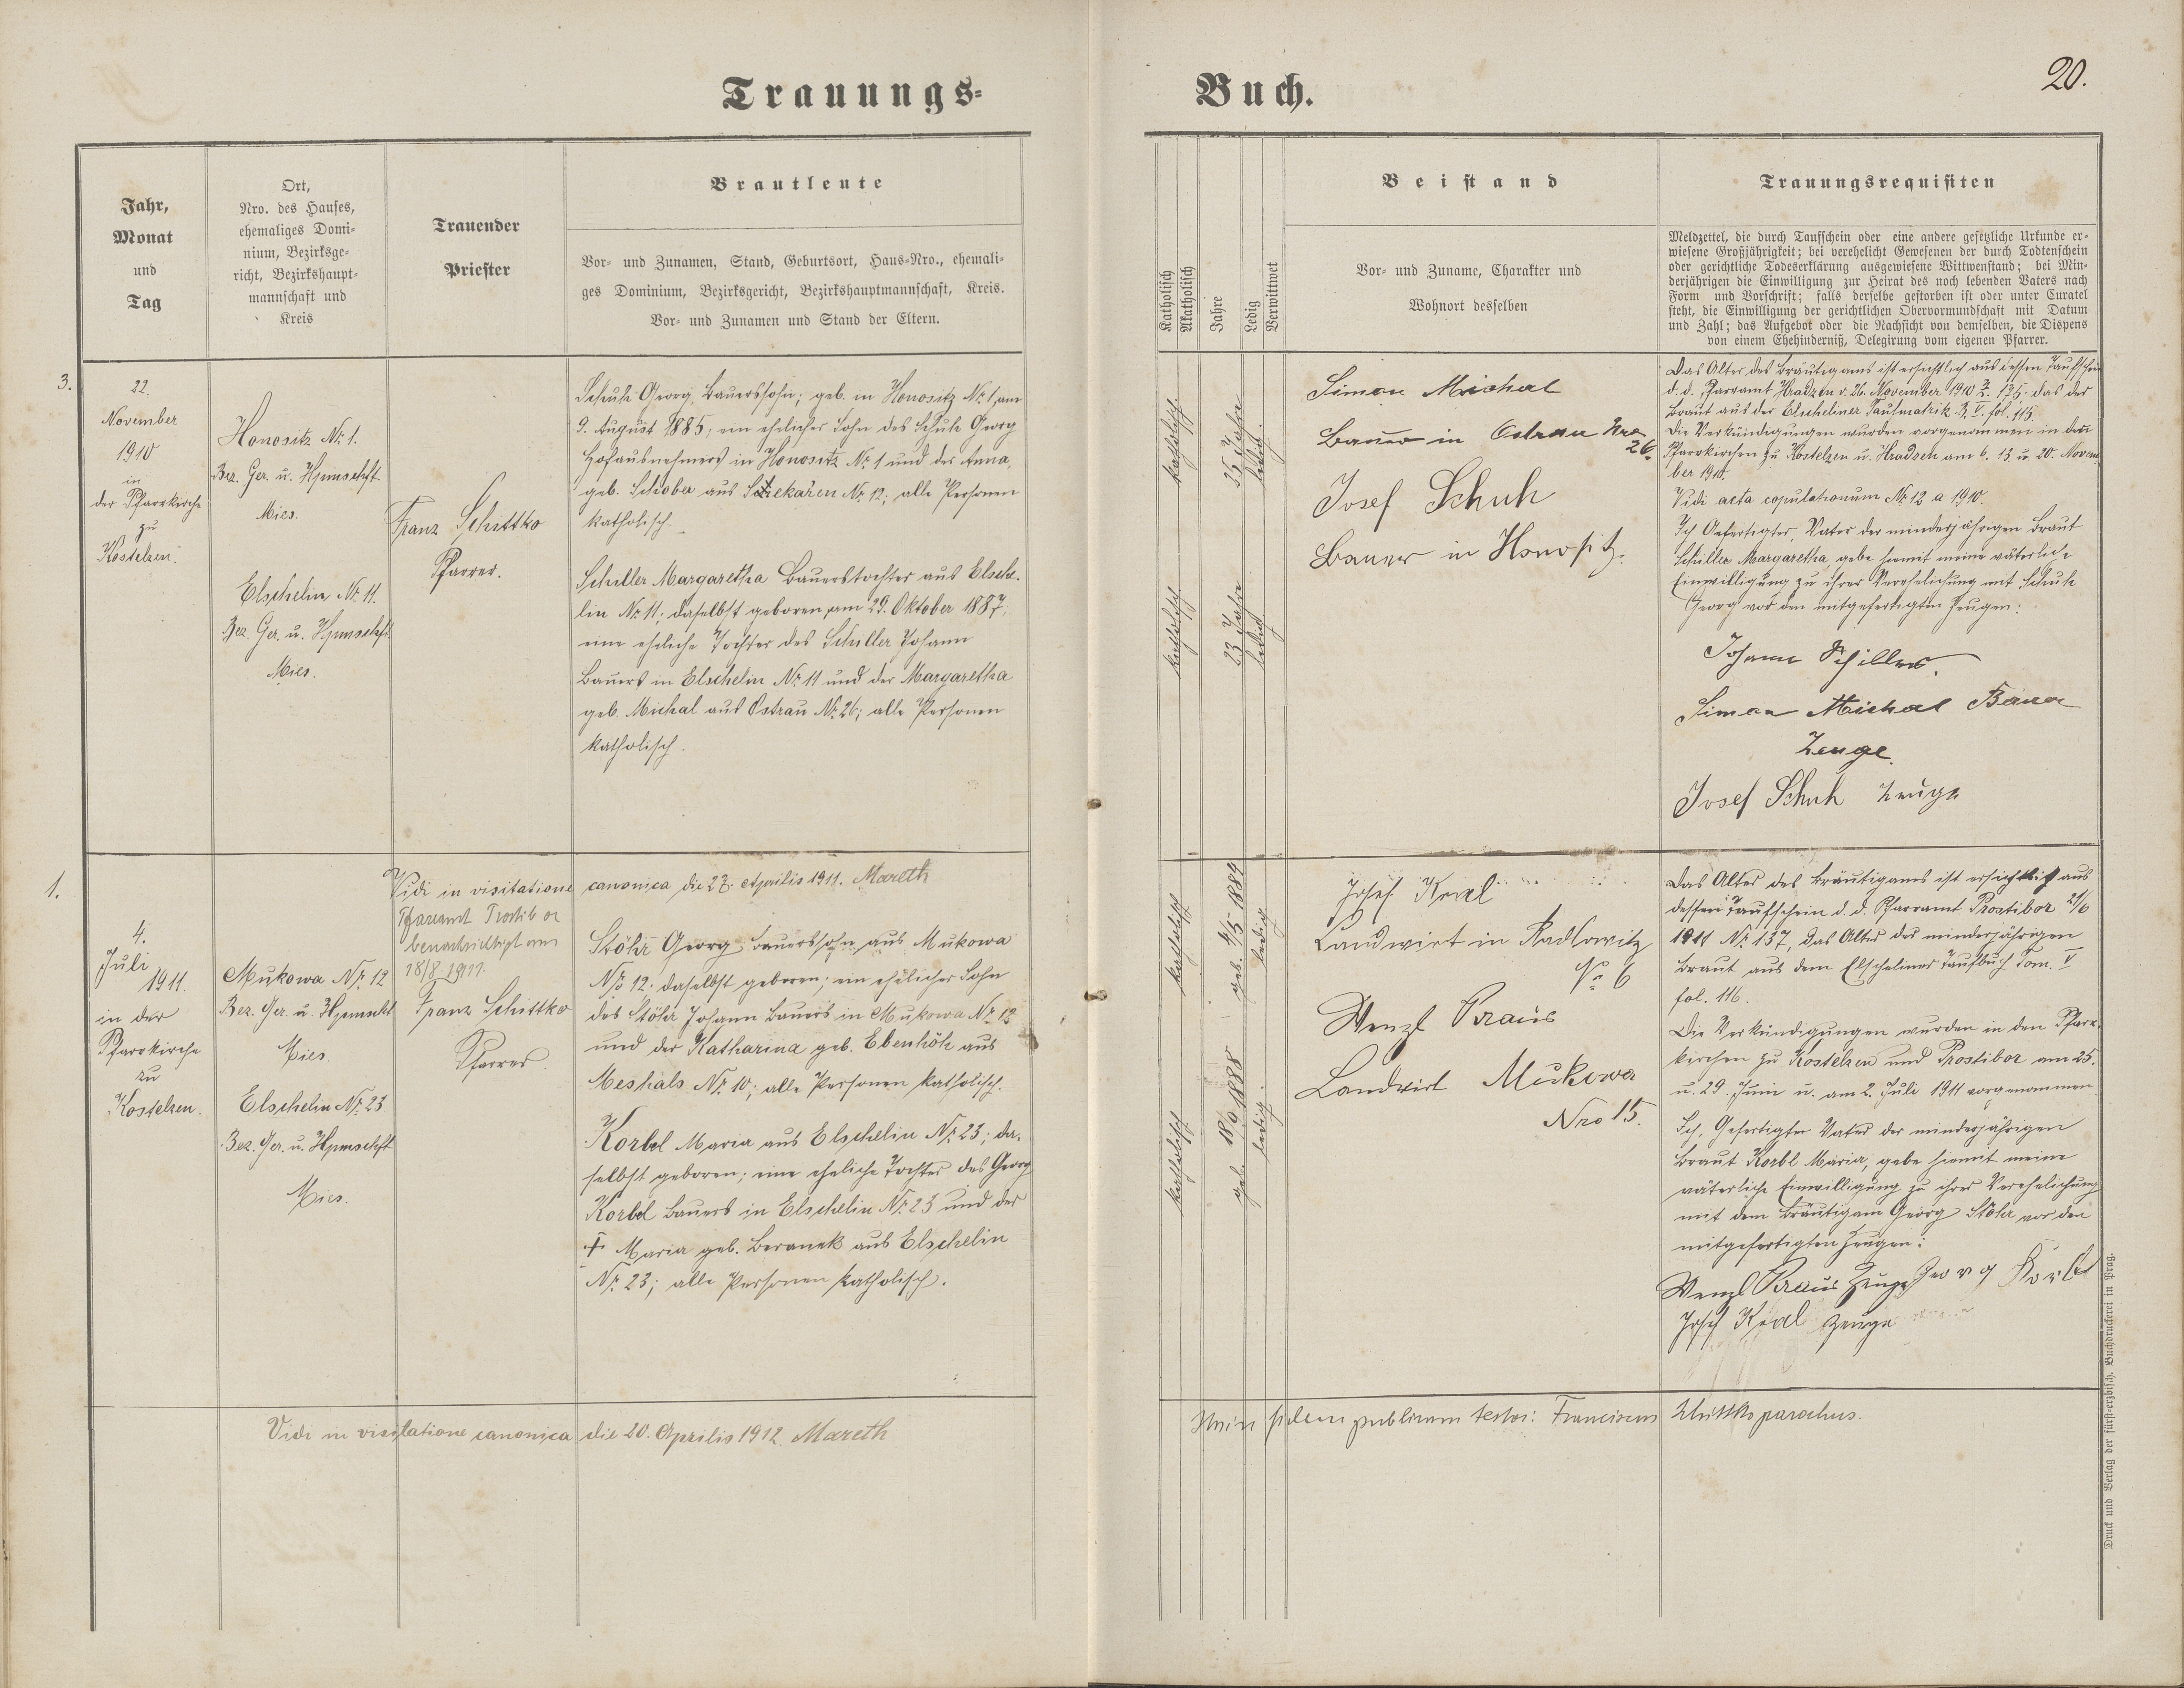 Trauungs-
Buch.
20.
Jahr,
Monat
und
Tag
Ort,
Nro. des Hauses,
ehemaliges Domi-
nium, Bezirksge-
richt, Bezirkshaupt-
mannschaft und
Kreis
Trauender
Priester
Brautleute
Vor- und Zunamen, Stand, Geburtsort, Haus-Nro., ehemali-
ges Dominium, Bezirksgericht, Bezirkshauptmannschaft, Kreis.
Vor- und Zunamen und Stand der Eltern.
Katholisch
Akatholisch
Jahre
Ledig
Verwittwet
Beistand
Vor- und Zuname, Charakter und
Wohnort desselben
Trauungsrequisiten
Meldzettel, die durch Taufschein oder eine andere gesetzliche Urkunde er-
wiesene Großjährigkeit; bei verehelicht Gewesenen der durch Todtenschein
oder gerichtliche Todeserklärung ausgewiesene Wittwenstand; bei Min-
derjährigen die Einwilligung zur Heirat des noch lebenden Vaters nach
Form und Vorschrift; falls derselbe gestorben ist oder unter Curatel
steht, die Einwilligung der gerichtlichen Obervormundschaft mit Datum
und Zahl; das Aufgebot oder die Nachsicht von demselben, die Dispens
von einem Ehehinderniß, Delegirung vom eigenen Pfarrer.
3.
22.
November
1910
in
der Pfarrkirche
zu
Kostelzen.
Honositz Nr. 1.
Bez. Ger. u. Hpmschft.
Mies.
Elschelin Nr. 11.
Bez. Ger. u. Hpmschft.
Mies.
Franz Schittko
Pfarrer.
Schuh Georg, Bauerssohn; geb. in Honositz Nr. 1 am
9. August 1885; ein ehelicher Sohn des Schuh Georg
Hofausnehmers in Honositz Nr. 1 und der Anna,
geb. Schober aus Nr. 12; alle Personen
katholisch.
Schiller Margaretha Bauerstochter aus Elsche-
lin Nr. 11; daselbst geboren am 29. Oktober 1887;
eine eheliche Tochter des Schiller Johann
Bauers in Elschelin Nr. 11 und der Margaretha
geb. Michal aus Ostrau Nr. 26; alle Personen
katholisch.
katholisch.
25 Jahre
ledig.
katholisch
23 Jahre
ledig.
Simon Michal
Bauer in Ostrau Nro
26.
Josef Schuh
Bauer in Honositz.
Das Alter des Bräutigams ist ersichtlich aus dessen Taufschein
d. d. Pfarramt Hradzen v. 26. November 1910 Z. 175. das der
Braut aus der Elscheliner Taufmatrik B. V. fol. 115.
Die Verkündigungen wurden vorgenommen in den
Pfarrkirchen zu Kostelzen u. Hradzen am 6. 13. u. 20. Novem-
ber 1910.
Vidi acta copulationum Nr. 12 a 1910.
Ich Gefertigter, Vater der minderjährigen Braut
Schiller Margaretha, gebe hiemit meine väterliche
Einwilligung zu ihrer Verehelichung mit Schuh
Georg vor den mitgefertigten Zeugen:
Johann Schiller.
Simon Michal Bauer
Zeuge.
Josef Schuh Zeuge
1.
Vidi in visitatione canonica die 27. Aprilis 1911. Mareth
Pfarramt Prostibor
benachrichtigt am
18/8. 1911.
4.
Juli
1911.
in der
Pfarrkirche
zu
Kostelzen.
Mukowa Nr. 12
Bez. Ger. u. Hpmscht
Mies.
Elschelin Nr. 23
Bez. Ger. u. Hpmschft
Mies.
Franz Schittko
Pfarrer.
Stöhr Georg Bauerssohn aus Mukowa
Nr. 12. daselbst geboren; ein ehelicher Sohn
des Stöhr Johann Bauers in Mukowa Nr. 12
und der Katharina geb. Ebenhöh aus
Meshals Nr. 10; alle Personen katholisch.
Korbel Maria aus Elschelin Nr. 23; da-
selbst geboren; eine eheliche Tochter des Georg
Korbel Bauers in Elschelin Nr. 23 und der
† Maria geb. Beranek aus Elschelin
Nr. 23; alle Personen katholisch.
katholisch
geb. 4/5 1889
ledig
katholisch
geb. 18/9 1888
ledig.
Josef Kral
Landwirt in Radlowitz
No 6
Wenzl Kraus
Landwirt Mukowa
Nro 15.
Das Alter des Bräutigams ist ersichtlich aus
dessen Taufschein d. d. Pfarramt Prostibor 21/6
1911 Nr. 137, das Alter der minderjährigen
Braut aus dem Elscheliner Taufbuch Tom. V
fol. 116.
Die Verkündigungen wurden in den Pfarr-
kirchen zu Kostelzen und Prostibor am 25.
u. 29. Juni u. am 2. Juli 1911 vorgenommen
Ich, Gefertigter Vater der minderjährigen
Braut Korbl Maria, gebe hiemit meine
väterliche Einwilligung zu ihrer Verehelichung
mit dem Bräutigam Georg Stöhr vor den
mitgefertigten Zeugen:
Wenzl Kraus Zeuge Georg Korbl
Josef Kral Zeuge
Vidi in visitatione canonica die 20. Aprilis 1912 Mareth
fidem publicam testor: Franciscus Schittko parochus.
Druck und Verlag der fürst-erzbisch. Buchdruckerei in Prag.